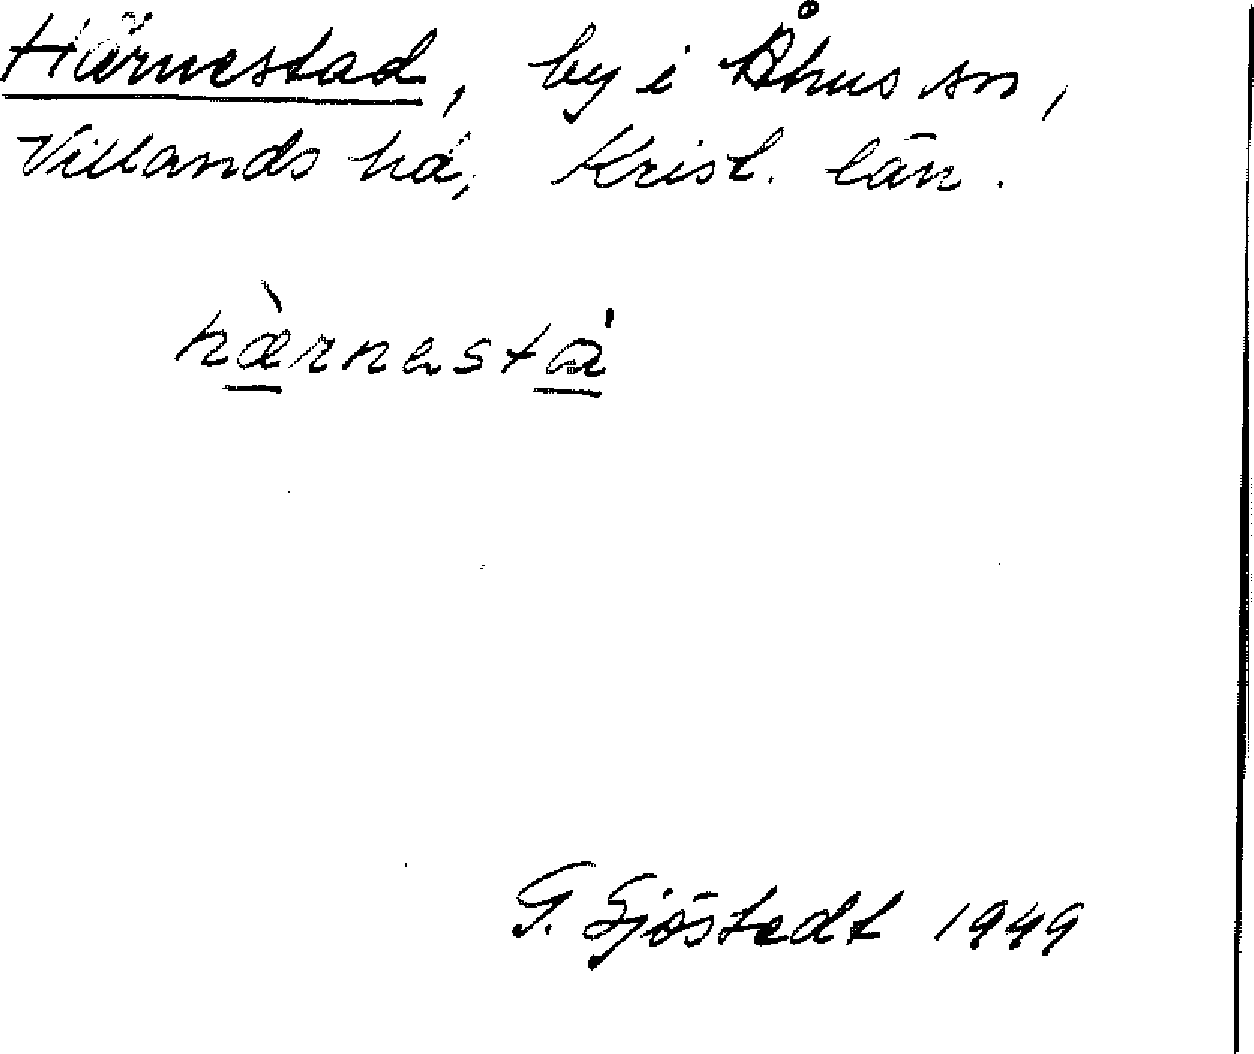 Härnestad, by i Åhus sn,
Villands hd, Krist. län.
hæ̀rnastá
G. Sjöstedt 1949